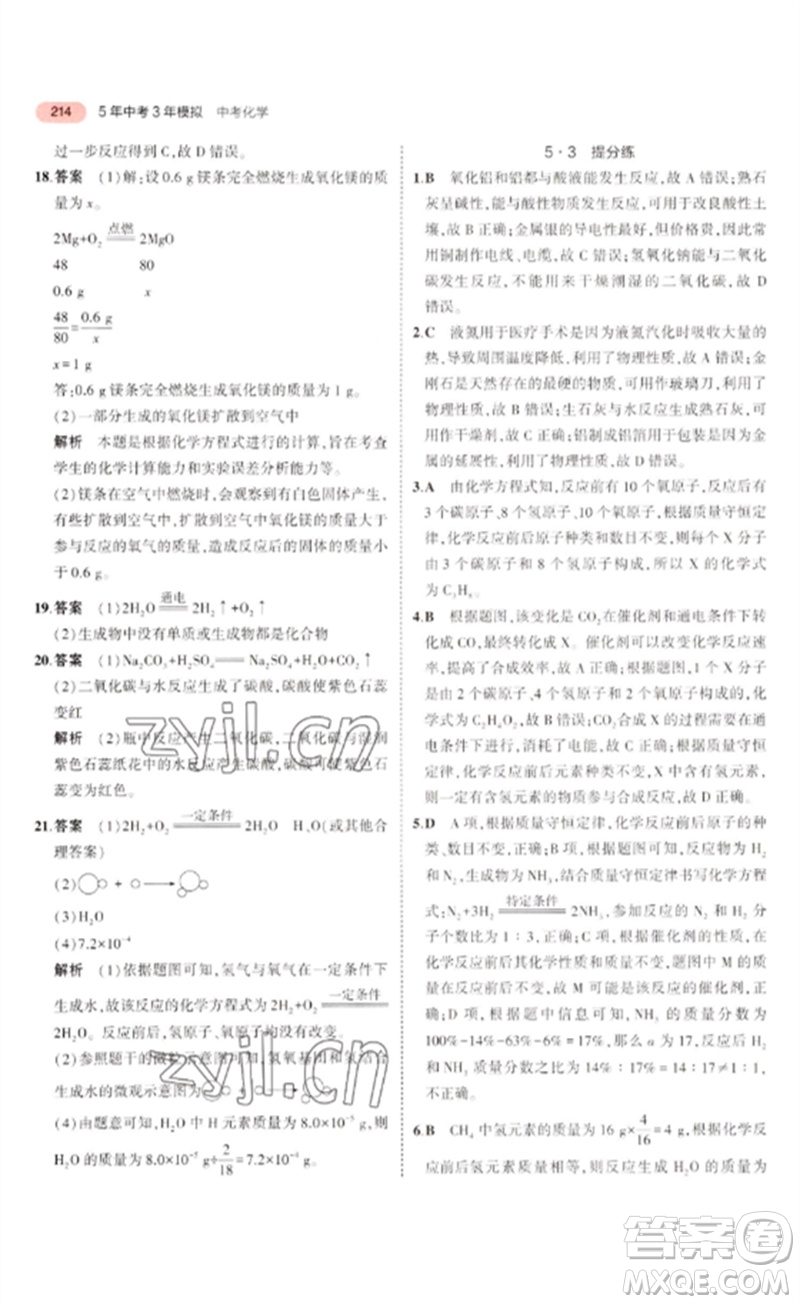 214 5年中考3年模拟 中考化学
过一步反应得到 C,故 D 错误。
18.答案 (1)解:设 0.6 g 镁条完全燃烧生成氧化镁的质
量为 x。
2Mg+O₂ 点燃 2MgO
48 80
0.6 g x
48/80=0.6 g/x
x=1 g
答:0.6 g 镁条完全燃烧生成氧化镁的质量为 1 g。
(2)一部分生成的氧化镁扩散到空气中
解析 本题是根据化学方程式进行的计算,旨在考查
学生的化学计算能力和实验误差分析能力等。
(2)镁条在空气中燃烧时,会观察到有白色固体产生,
有些扩散到空气中,当扩散到空气中氧化镁的质量大于
参与反应的氧气的质量,造成反应后的固体的质量小
于 0.6 g。
19.答案 (1)2H₂O 通电 2H₂↑+O₂↑
(2)生成物中没有单质或生成物都是化合物
20.答案 (1)Na₂CO₃+H₂SO₄══Na₂SO₄+H₂O+CO₂↑
(2)二氧化碳与水反应生成了碳酸,碳酸使紫色石蕊
变红
解析 (2)瓶中反应产生二氧化碳,二氧化碳与湿润
紫色石蕊纸花中的水反应产生碳酸,碳酸可使紫色石
蕊变为红色。
21.答案 (1)2H₂+O₂ 一定条件 2H₂O H₂O(或其他合
理答案)
(2) + →
(3)H₂O
(4)7.2×10⁻⁴
解析 (1)依据题图可知,氢气与氧气在一定条件下
生成水,故该反应的化学方程式为 2H₂+O₂ 一定条件
2H₂O。反应前后,氢原子、氧原子的种类没有改变。
(2)参照题干的微粒示意图可知,氢氧基团和氢结合
生成水的微观示意图为 + →
(4)由题意可知,H₂O 中 H 元素质量为 8.0×10⁻⁵ g,则
H₂O 的质量为 8.0×10⁻⁵ g÷2/18=7.2×10⁻⁴ g。
5·3 提分练
1.B 氧化铝和铝都与酸液能发生反应,故 A 错误;熟石
灰呈碱性,能与酸性物质发生反应,可用于改良酸性土
壤,故 B 正确;金属银的导电性最好,但价格贵,一般常
用铜制作电线、电缆,故 C 错误;氢氧化钠能与二氧化
碳发生反应,不能用来干燥潮湿的二氧化碳,故 D
错误。
2.C 液氮用于医疗手术是因为液氮汽化时吸收大量的
热,导致周围温度降低,利用了物理性质,故 A 错误;金
刚石是天然存在的最硬的物质,可用作玻璃刀,利用了
物理性质,故 B 错误;生石灰与水反应生成熟石灰,可
作干燥剂,利用了化学性质,故 C 正确;铝制成铝箔用于包装是因为金
属的延展性,利用了物理性质,故 D 错误。
3.A 由化学方程式知,反应前有 10 个氧原子,反应后有
3 个碳原子、8 个氢原子、10 个氧原子,根据质量守恒定
律,化学反应前后原子种类和数目不变,则每个 X 分子
由 3 个碳原子和 8 个氢原子构成,所以 X 的化学式
为 C₃H₈。
4.B 根据题图,该变化是 CO₂ 在催化剂和通电条件下转
化成 CO,最终转化成 X。催化剂可以改变化学反应速
率,因此过程中催化剂能加快反应;根据题图,1 个 X 分子
是由 2 个碳原子、4 个氢原子和 2 个氧原子构成的,故 X
为 C₂H₄O₂,故 B 错误;CO₂ 合成 X 的过程需要在通
电条件下进行,消耗了电能,故 C 正确;根据质量守恒
定律,化学反应前后元素种类不变,X 中含有氢元素,则
一定有含氢元素的物质参与合成反应,故 D 正确。
5.D A 项,根据质量守恒定律,化学反应前后原子的种
类、数目不变,正确;B 项,根据题图可知,反应物为 H₂
和 N₂,生成物为 NH₃,结合质量守恒定律书写化学方程
式:N₂+3H₂ 特定条件 2NH₃,参加反应的 N₂ 和 H₂ 分
子个数比为 1∶3,正确;C 项,根据催化剂的质量在化
学反应前后其质量不变,故 M 可能是该反应的催化剂,
正确;D 项,根据题中信息可知,NH₃ 的质量分数为
100%-14%-63%-6%=17%,那么 a 为 17,反应后 H₂
和 NH₃ 质量分数之比为 14%∶17%=14∶17≠1∶1,
不正确。
6.B CH₄ 中氢元素的质量为 16 g×4/16=4 g,根据化学反
应前后氢元素质量相等,则反应后生成 H₂O 的质量为
zyjl.cn
zyjl.cn
答案圈
MXQE.COM